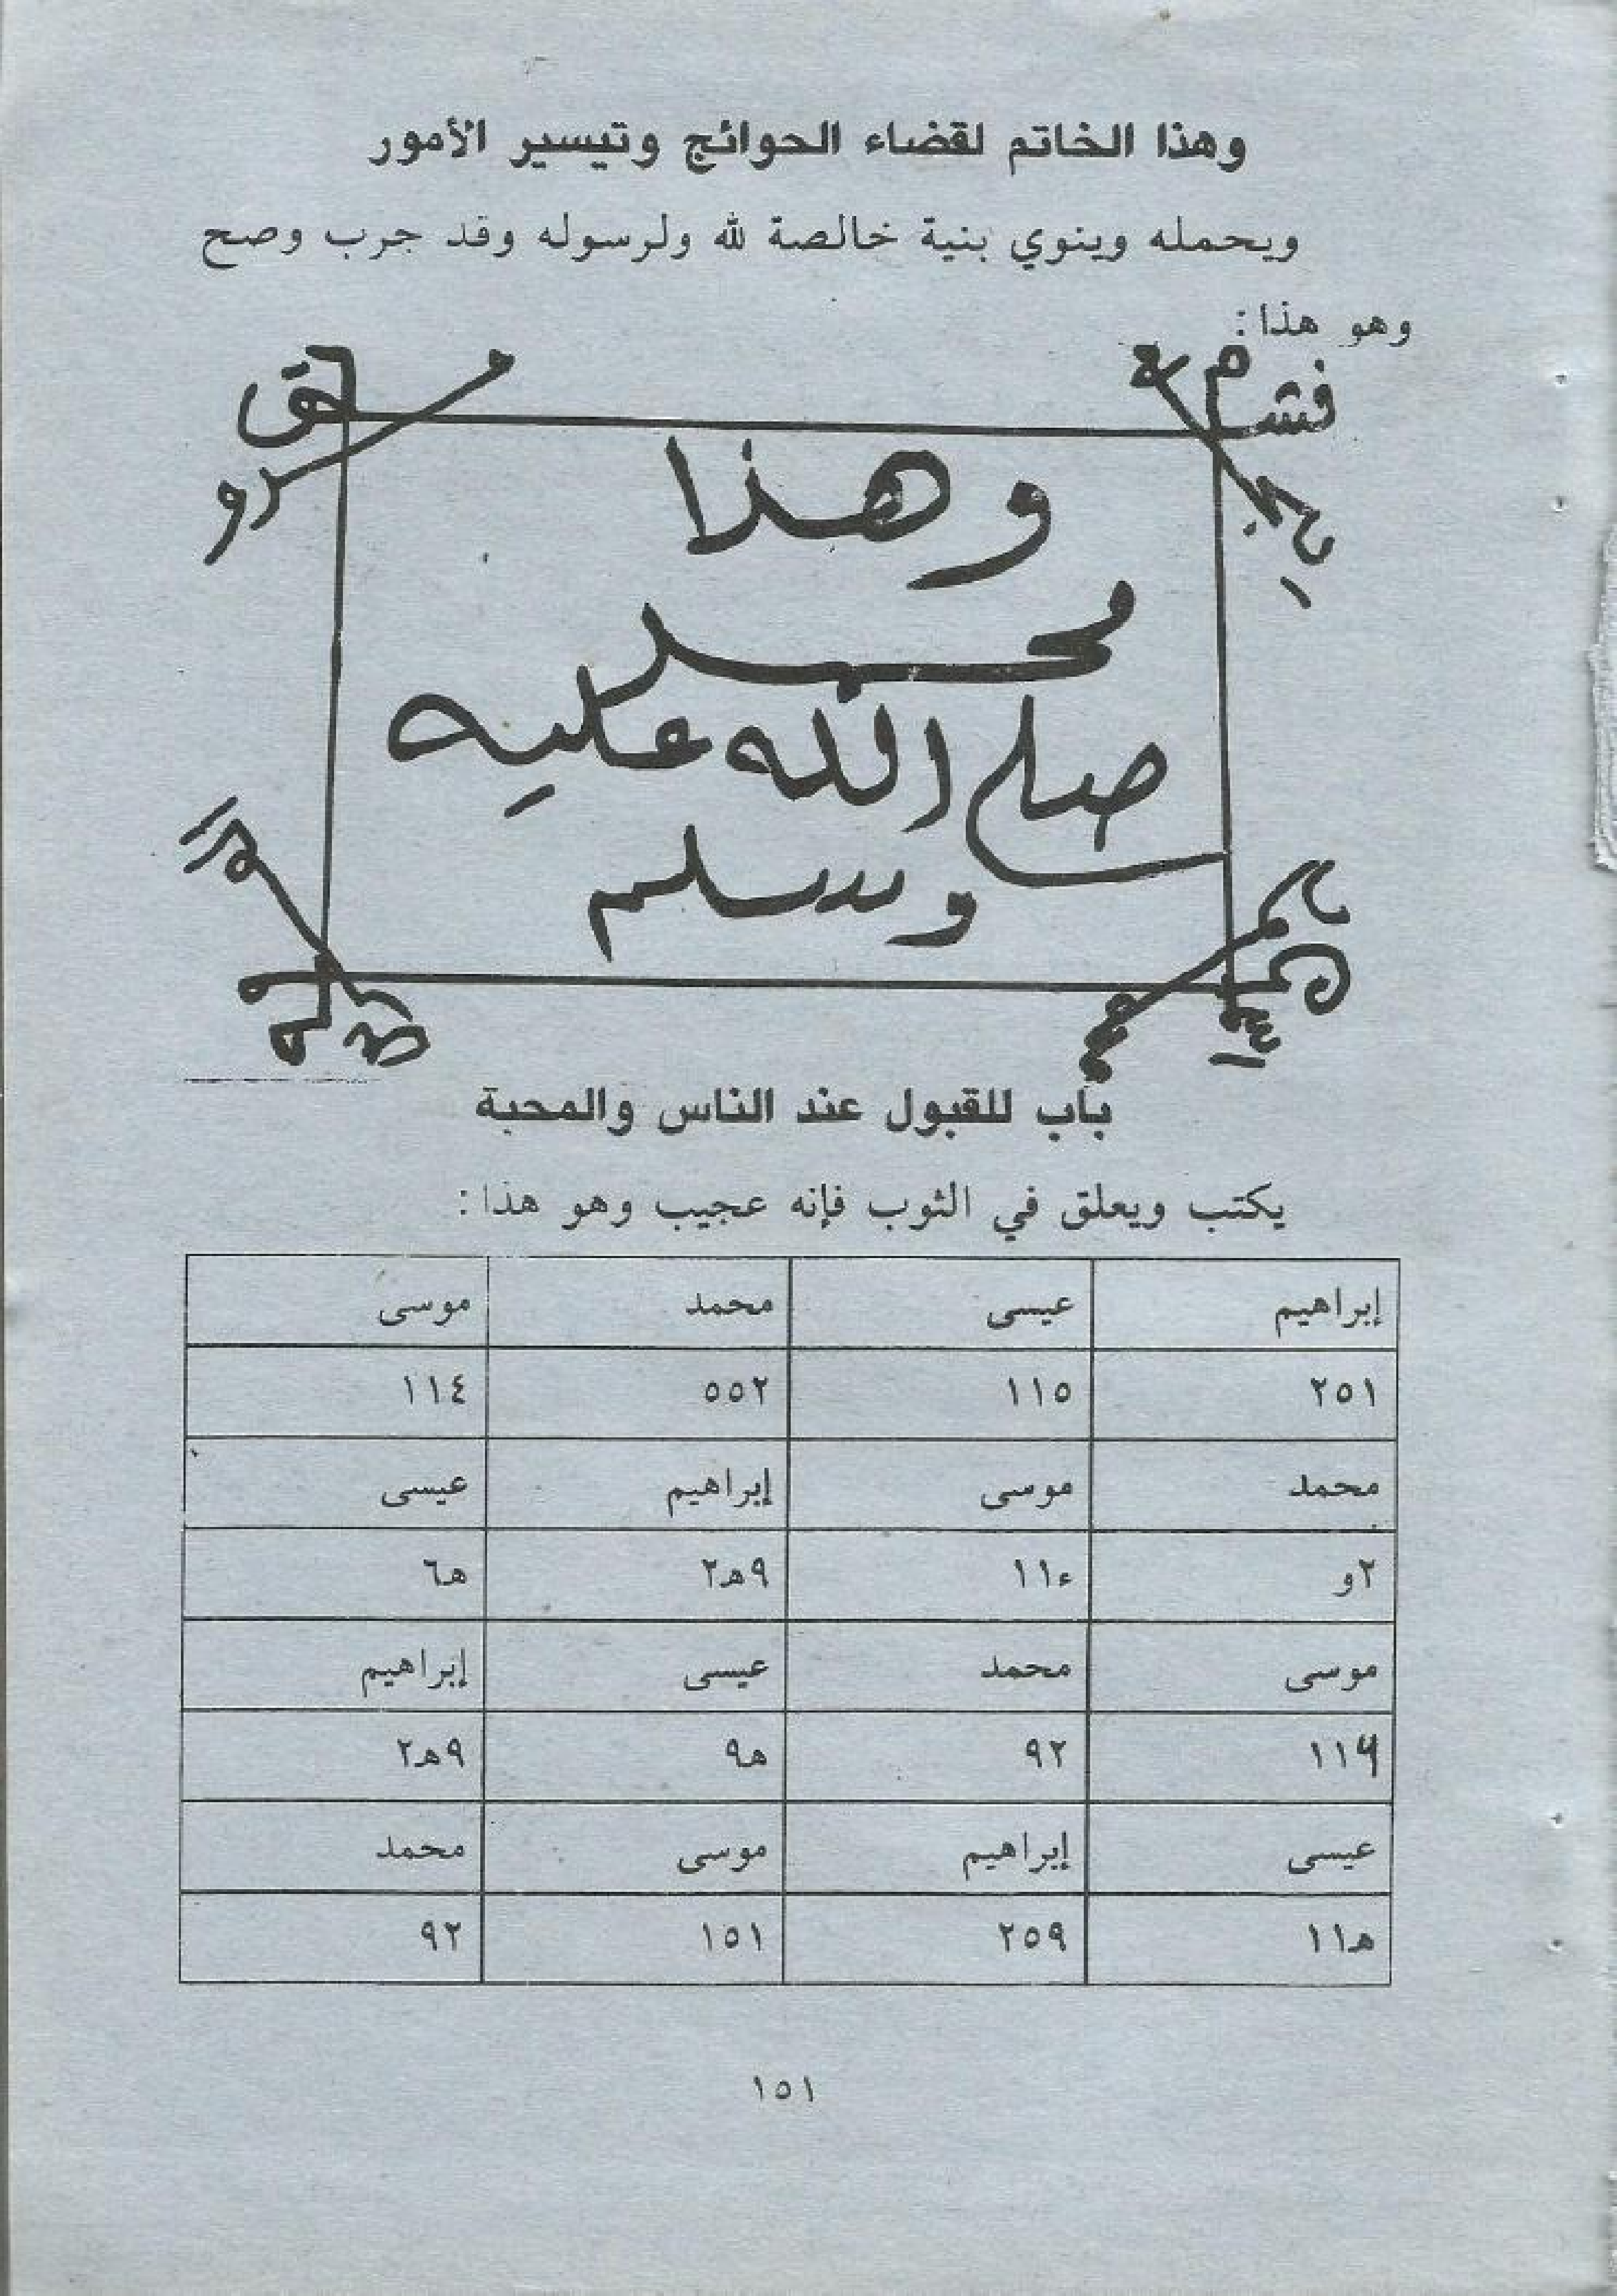 وهذا الخاتم لقضاء الحوائج وتيسير الأمور
ويحمله وينوي بنية خالصة لله ولرسوله وقد جرب وصح
وهو هذا:
وهذا
محمد
صلى الله عليه
وسلم
باب للقبول عند الناس والمحبة
يكتب ويعلق في الثوب فإنه عجيب وهو هذا:
إبراهيم عيسى محمد موسى
٢٥١ ١١٥ ٥٥٢ ١١٤
محمد موسى إبراهيم عيسى
٢و ء١١ ٢هـ٩ هـ٦
موسى محمد عيسى إبراهيم
٩٢ هـ٩ ٢هـ٩
عيسى إبراهيم موسى محمد
١١هـ ٢٥٩ ١٥١ ٩٢
١٥١